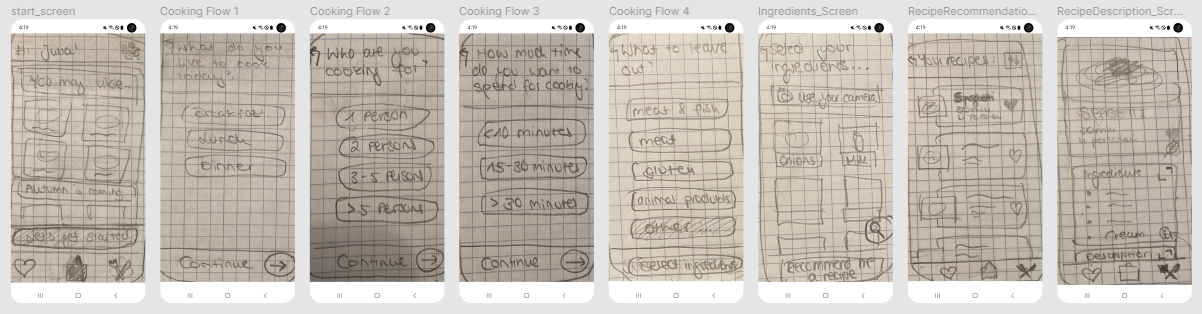 start_screen
4:19
Hi Julia!
You may like...
Autumn is coming
Let's get started
Cooking Flow 1
4:19
What do you
like to cook
today?
Breakfast
Lunch
Dinner
Continue
Cooking Flow 2
4:19
Who are you
cooking for?
1 Person
2 Persons
3-5 Persons
>5 Persons
Continue
Cooking Flow 3
4:19
How much time
do you want to
spend for cooking?
<10 minutes
15-30 minutes
> 30 minutes
Continue
Cooking Flow 4
4:19
What to leave
out?
meat & fish
meat
gluten
animal products
other...
Select ingredients
Ingredients_Screen
4:19
Select your
ingredients...
Use your camera!
Onions
Milk
Recommend me
a recipe
RecipeRecommendatio...
4:19
Your recipes:
RecipeDescription_Scr...
4:19
Ingredients
Cream
Description